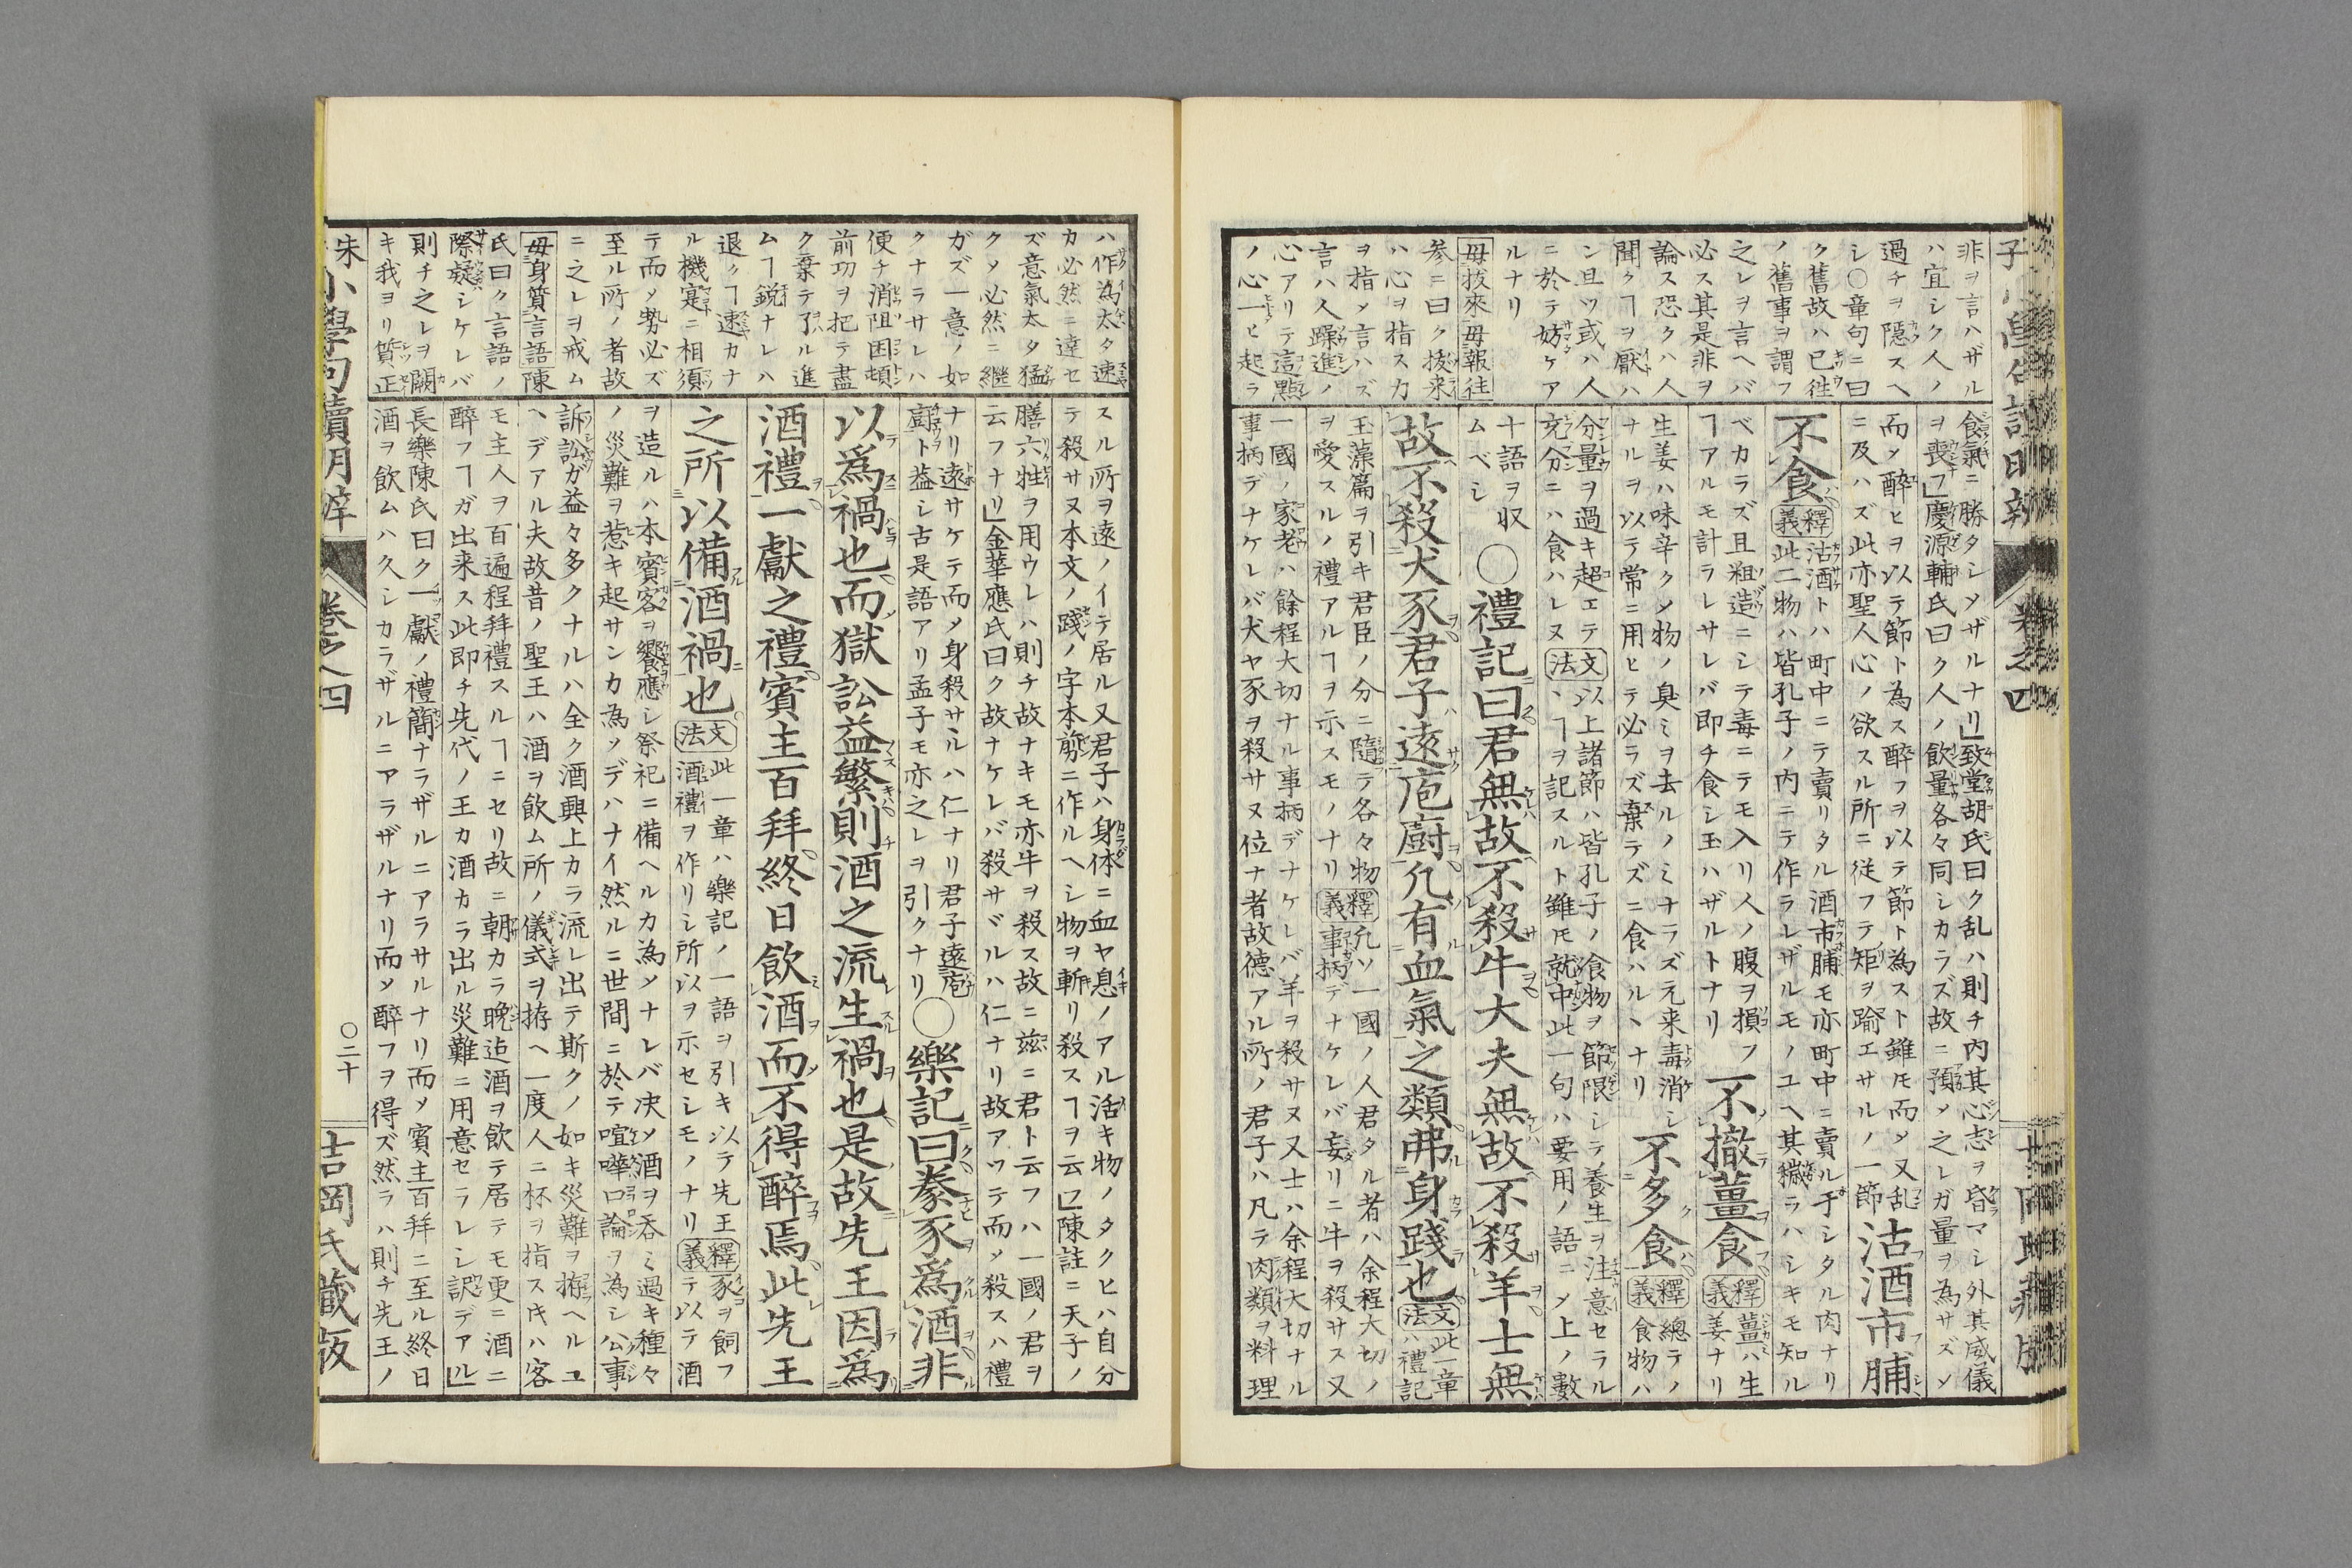 非ヲ言ハザル
ハ宜シク人ノ
過チヲ隠スヘ
シ〇章句ニ曰
ク舊故ハ已徃
ノ舊事ヲ謂フ
之レヲ言ヘバ
必ス其是非ヲ
論ス恐クハ人
聞クヿヲ厭ハ
ン且ツ或ハ人
ニ於テ妨ケア
ルナリ
毋抜來毋報往
参ニ曰ク抜来
ハ心ヲ指スカ
ヲ指メ言ハズ
言ハ人躁進ノ
心アリテ這點
ノ心一ヒ起ラ
食氣ニ勝タシメザルナリ」致堂胡氏曰ク乱ハ則チ内其心志ヲ昏マシ外其威儀
ヲ喪フ」慶源輔氏曰ク人ノ飲量各々同シカラズ故ニ預メ之レガ量ヲ為サズメ
而メ醉ヒヲ以テ節ト為ス醉フヲ以テ節ト為スト雖モ而メ又乱
ニ及ハズ此亦聖人心ノ欲スル所ニ従フテ矩ヲ踰エサルノ一節
沽酒市脯
不食
釋義
沽酒トハ町中ニテ賣リタル酒市脯モ亦町中ニ賣ル干シタル肉ナリ
此二物ハ皆孔子ノ内ニテ作ラレザルモノユヘ其穢ラハシキモ知ル
ベカラズ且粗造ニシテ毒ニテモ入リ人ノ腹ヲ損フ
ヿアルモ計ラレサレバ即チ食シ玉ハザルトナリ
不撤薑食
釋義
薑ハ生
姜ナリ
生姜ハ味辛クメ物ノ臭ミヲ去ルノミナラズ元来毒消シ
ナルヲ以テ常ニ用ヒテ必ラズ棄テズニ食ハルヽナリ
不多食
釋義
總テノ
食物ハ
分量ヲ過キ超エテ
充分ニハ食ハレヌ
文法
以上諸節ハ皆孔子ノ飡物ヲ節限シテ養生ヲ注意セラル
ヽヿヲ記スルト雖モ就中此一句ハ要用ノ語ニメ上ノ數
十語ヲ収
ムベシ
〇禮記曰君無故不殺牛大夫無故不殺羊士無
故不殺犬豕君子遠庖廚凡有血氣之類弗身踐也
文法
此一章
ハ禮記
玉藻篇ヲ引キ君臣ノ分ニ隨テ各々物
ヲ愛スルノ禮アルヿヲ示スモノナリ
釋義
凡ソ一國ノ人君タル者ハ余程大切ノ
事柄デナケレバ妄リニ牛ヲ殺サス又
一國ノ家老ハ餘程大切ナル事柄デナケレバ羊ヲ殺サヌ又士ハ余程大切ナル
事柄デナケレバ犬ヤ豕ヲ殺サヌ位ナ者故德アル所ノ君子ハ凡テ肉類ヲ料理
卷之四
ハ作為太タ速
カ必然ニ達セ
ズ意氣太タ猛
クメ必然ニ継
ガズ一意ノ如
クナラサレハ
便チ消阻困頓
前功ヲ把テ盡
ク棄テ了ル進
ムヿ鋭ナレハ
退クヿ速カナ
ル機寔ニ相須
テ而メ勢必ズ
至ル所ノ者故
ニ之レヲ戒ム
毋身質言語陳
氏曰ク言語ノ
際疑シケレバ
則チ之レヲ闕
キ我ヨリ質正
スル所ヲ遠ノイテ居ル又君子ハ身体ニ血ヤ息ノアル活キ物ノタクヒハ自分
テ殺サヌ本文ノ踐ノ字本剪ニ作ルヘシ物ヲ斬リ殺スヿヲ云」陳註ニ天子ノ
膳六牲ヲ用ウレハ則チ故ナキモ亦牛ヲ殺ス故ニ兹ニ君ト云フハ一國ノ君ヲ
云フナリ」金華應氏曰ク故ナケレバ殺サヾルハ仁ナリ故アツテ而メ殺スハ禮
ナリ遠サケテ而メ身殺サルハ仁ナリ君子遠庖
廚ト益シ古是語アリ孟子モ亦之レヲ引クナリ
〇樂記曰豢豕爲酒非
以爲禍也而獄訟益繁則酒之流生禍也是故先王因爲
酒禮一獻之禮賓主百拜終日飲酒而不得醉焉此先王
之所以備酒禍也
文法
此一章ハ樂記ノ一語ヲ引キ以テ先王
酒禮ヲ作リシ所以ヲ示セシモノナリ
釋義
豕ヲ飼フ
テ以テ酒
ヲ造ルハ本賓客ヲ饗應シ祭祀ニ備ヘルカ為メナレバ决メ酒ヲ呑ミ過キ種々
ノ災難ヲ惹キ起サンカ為メデハナイ然ルニ世間ニ於テ喧嘩口論ヲ為シ公事
訴訟ガ益々多クナルハ全ク酒興上カラ流レ出テ斯クノ如キ災難ヲ拵ヘルユ
ヘデアル夫故昔ノ聖王ハ酒ヲ飲ム所ノ儀式ヲ拵ヘ一度人ニ杯ヲ指スキハ客
モ主人ヲ百遍程拜禮スルヿニセリ故ニ朝カラ晩迠酒ヲ飲テ居テモ更ニ酒ニ
醉フヿガ出来ス此即チ先代ノ王カ酒カラ出ル災難ニ用意セラレシ訳デアル」
長樂陳氏曰ク一獻ノ禮簡ナラザルニアラサルナリ而メ賓主百拜ニ至ル終日
酒ヲ飲ムハ久シカラザルニアラザルナリ而メ醉フヲ得ズ然ラハ則チ先王ノ
小學句讀明辨
卷之四
〇二十
吉岡氏藏版